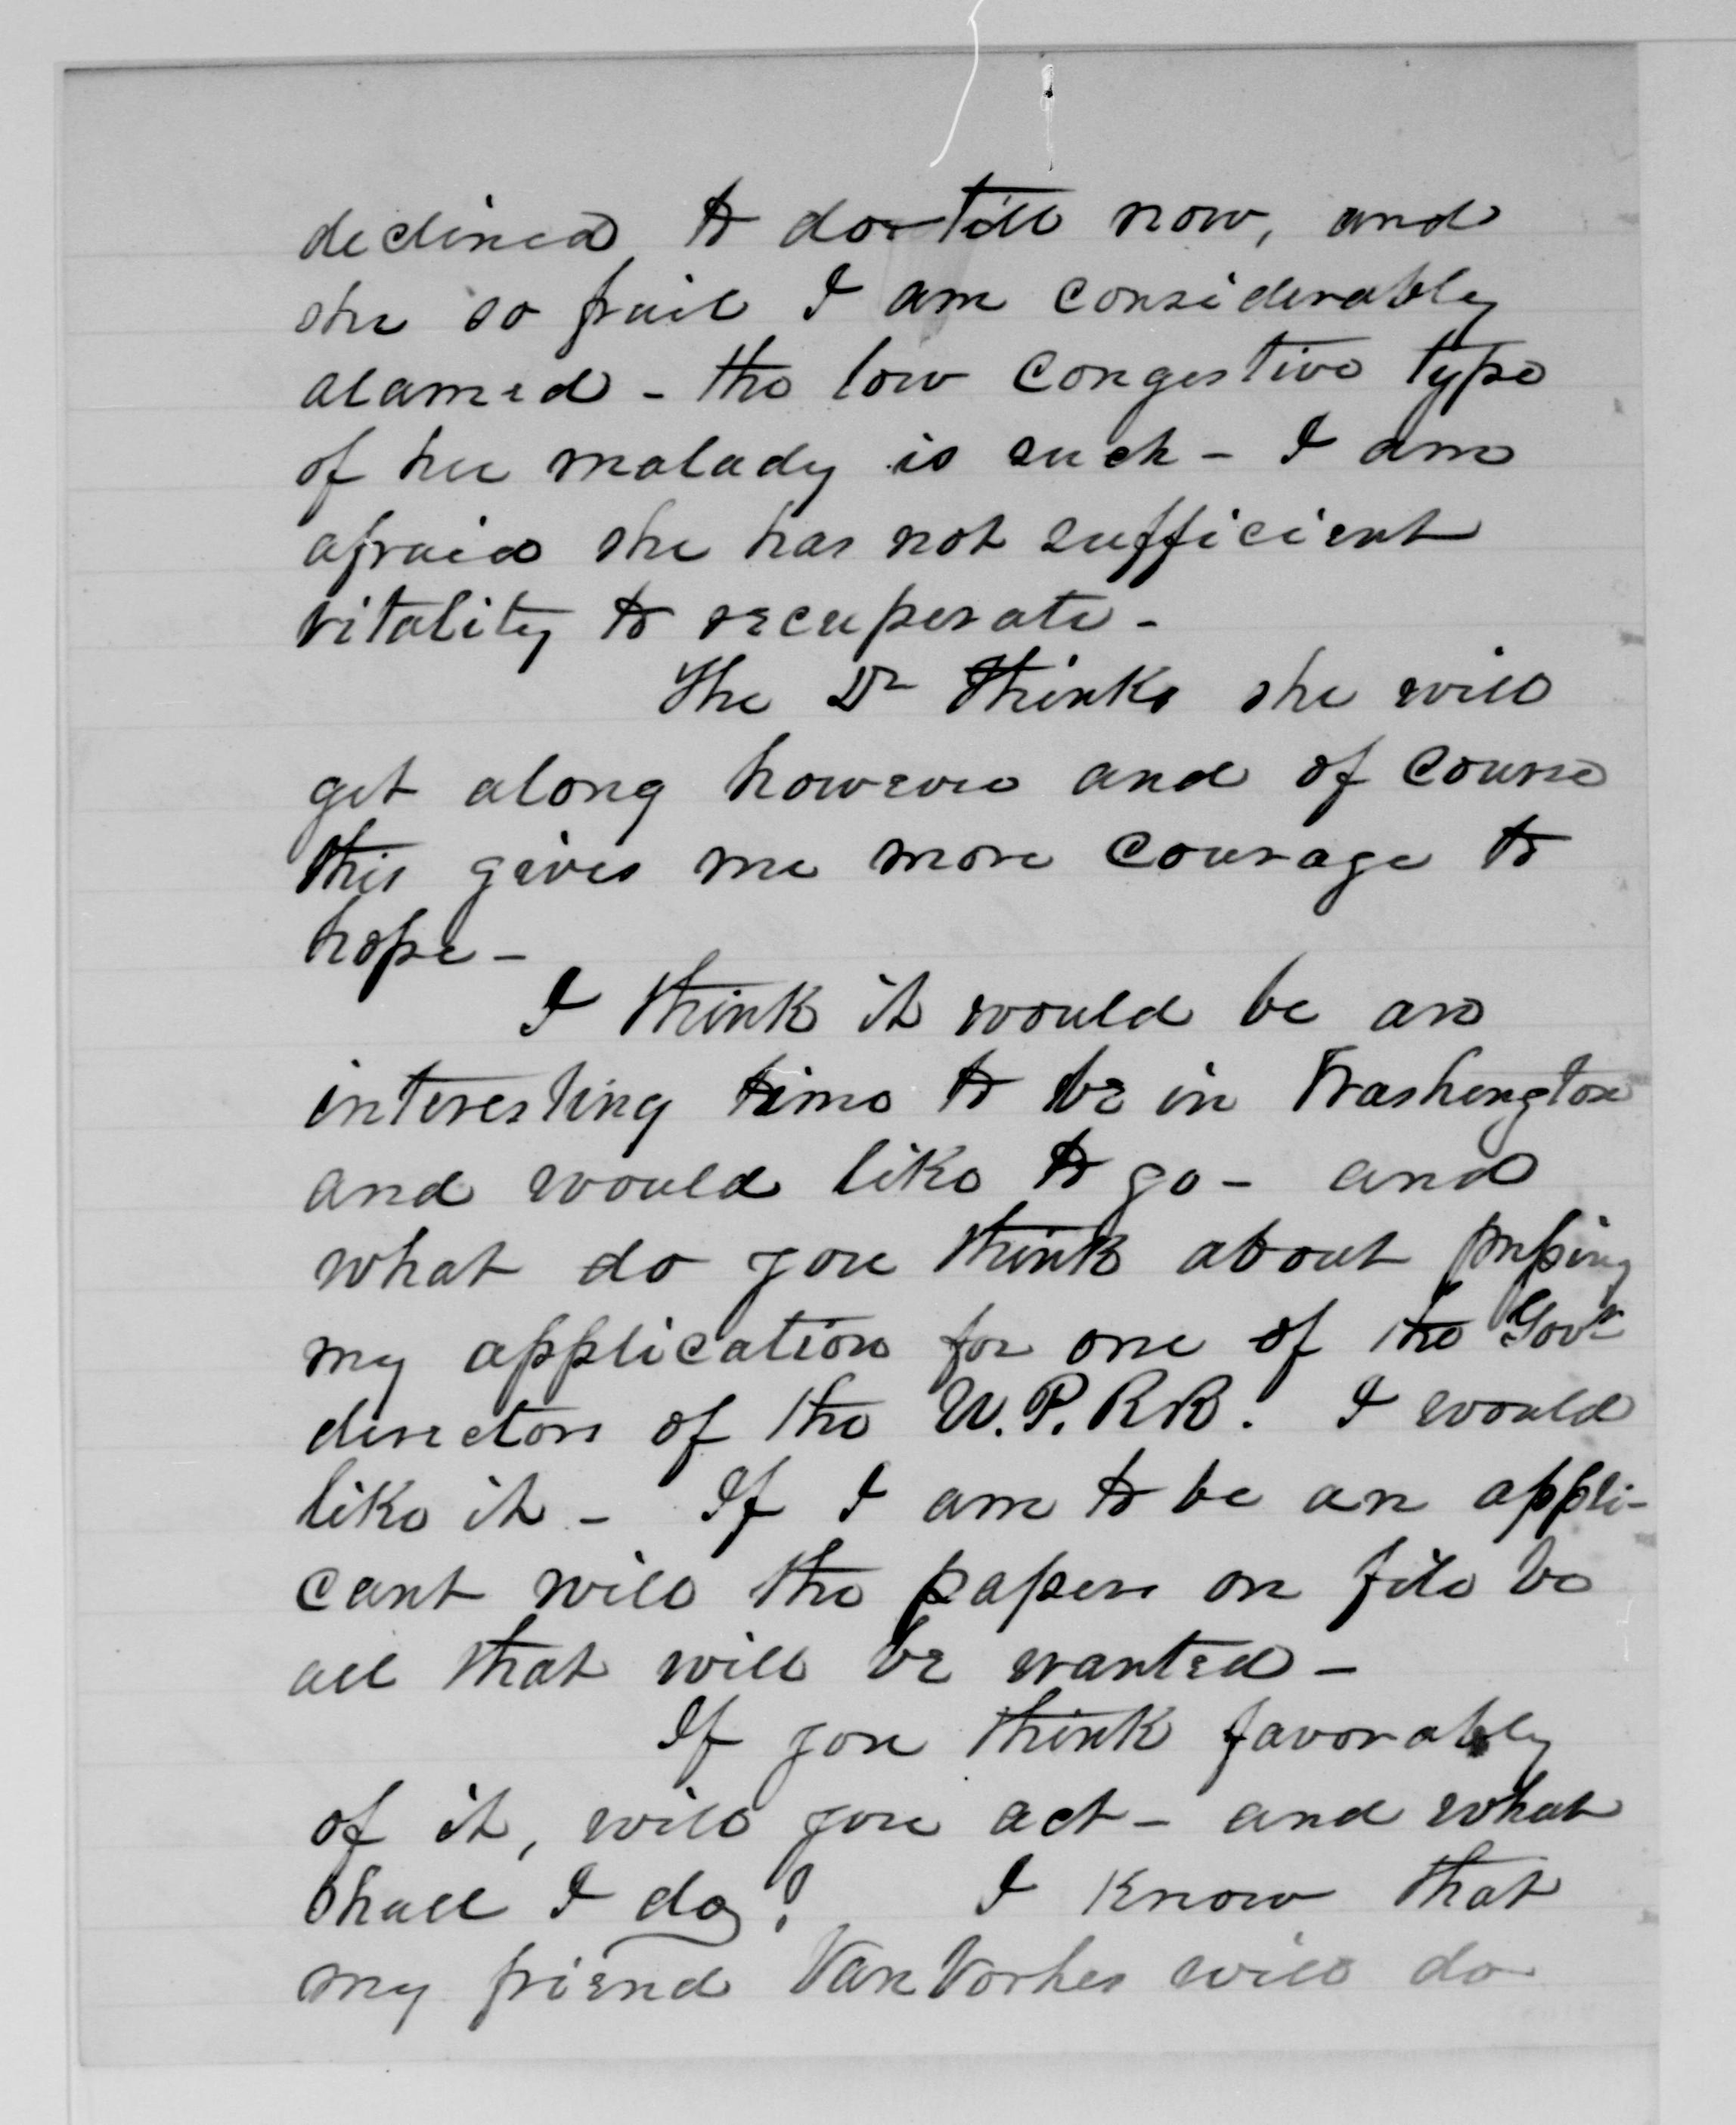 declined to do till now, and
she so frail I am considerably
alarmed - the low congestive type
of her malady is such - I am
afraid she has not sufficient
vitality to recuperate -
The Dr thinks she will
get along however and of course
this gives me more courage to
hope -
I think it would be an
interesting time to be in Washington
and would like to go - and
what do you think about pressing
my application for one of the Govt
directors of the U.P.RR. I would
like it - If I am to be an appli-
cant will the papers on file be
all that will be wanted -
If you think favorably
of it, will you act - and what
shall I do? I know that
my friend Van Vorhes will do